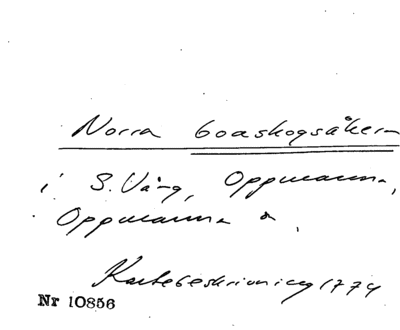 Norra boaskogsåkern
i S. Vång, Oppmanna,
Oppmanna s.
Kartebeskrivning 1774
Nr 10856